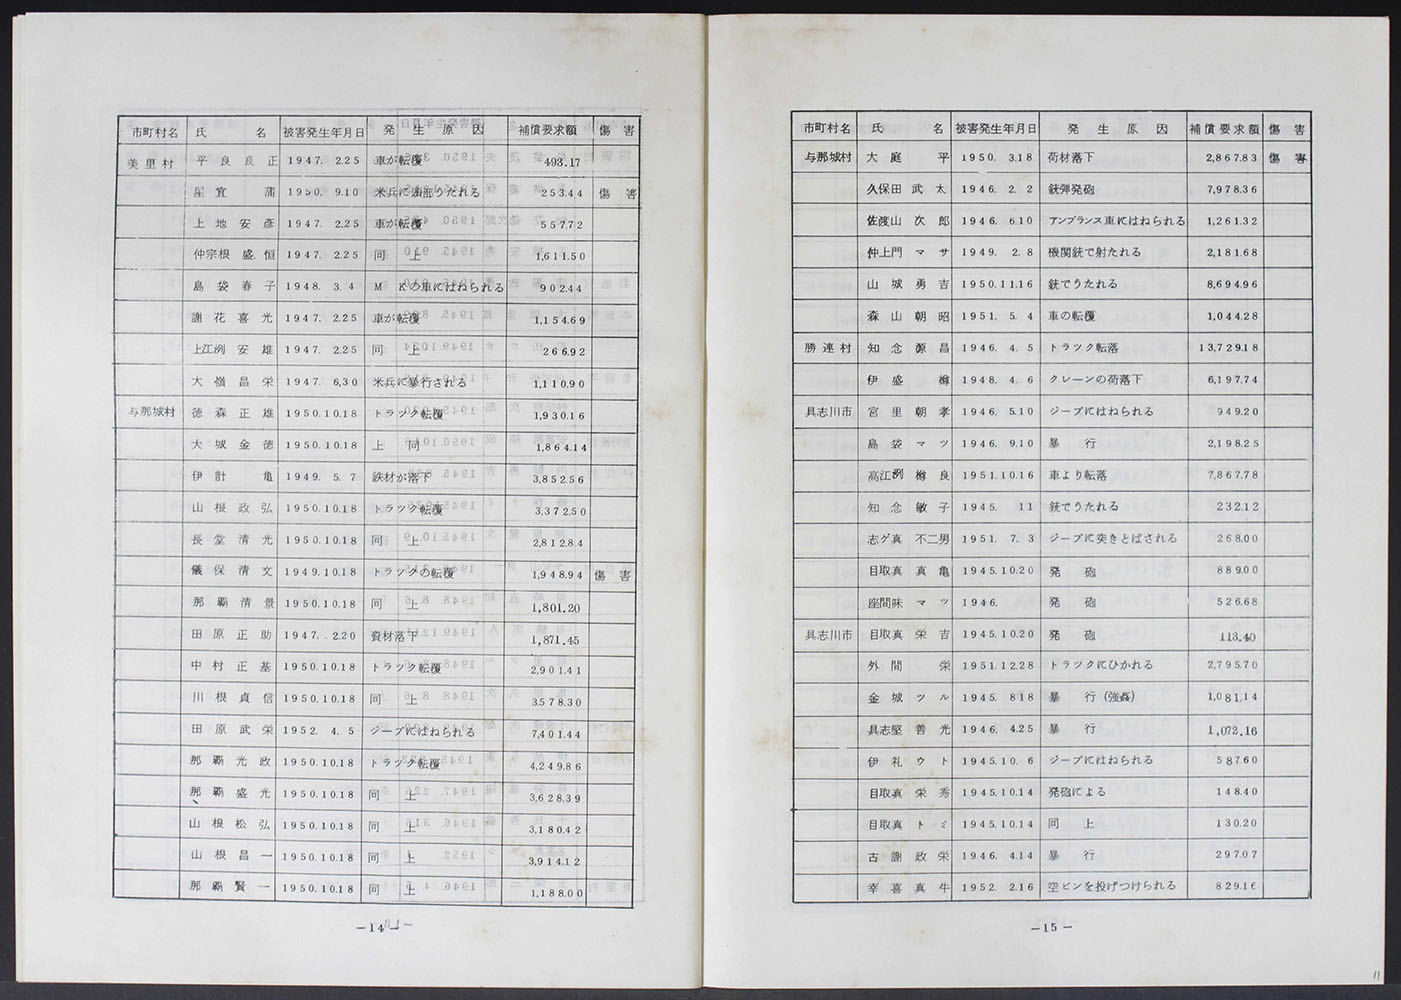 市町村名 氏 名 被害発生年月日 発 生 原 因 補償要求額 傷 害
美里村 平 良 良 正 1947. 2.25 車が転覆 493.17
屋 宜 蒲 1950. 9.10 米兵に頭部うたれる 253.44 傷 害
上 地 安 彦 1947. 2.25 車が転覆 557.72
仲宗根 盛 恒 1947. 2.25 同 上 1,611.50
島 袋 春 子 1948. 3. 4 M Kの車にはねられる 902.44
謝 花 喜 光 1947. 2.25 車が転覆 1,154.69
上江洌 安 雄 1947. 2.25 同 上 266.92
大 嶺 昌 栄 1947. 6,30 米兵に暴行される 1,110.90
与那城村 徳 森 正 雄 1950.10.18 トラック転覆 1,930.16
大 城 金 徳 1950.10.18 上 同 1,864.14
伊 計 亀 1949. 5. 7 鉄材が落下 3,852.56
山 根 政 弘 1950.10.18 トラック転覆 3,372.50
長 堂 清 光 1950.10.18 同 上 2,812.84
儀 保 清 文 1949.10.18 トラックの転覆 1,948.94 傷 害
那 覇 清 景 1950.10.18 同 上 1,801.20
田 原 正 助 1947. 2.20 資材落下 1,871.45
中 村 正 基 1950.10.18 トラック転覆 2,901.41
川 根 貞 信 1950.10.18 同 上 3,578.30
田 原 武 栄 1952. 4. 5 ジープにはねられる 7,401.44
那 覇 光 政 1950.10.18 トラック転覆 4,249.86
那 覇 盛 光 1950.10.18 同 上 3,628.39
山 根 松 弘 1950.10.18 同 上 3,180.42
山 根 昌 一 1950.10.18 同 上 3,914.12
那 覇 賢 一 1950.10.18 同 上 1,188.00
－14－
市町村名 氏 名 被害発生年月日 発 生 原 因 補償要求額 傷 害
与那城村 大 庭 平 1950. 3.18 荷材落下 2,867.83 傷 害
久保田 武 太 1946. 2. 2 銃弾発砲 7,978.36
佐渡山 次 郎 1946. 6.10 アンブランス車にはねられる 1,261.32
仲上門 マ サ 1949. 2. 8 機関銃で射たれる 2,181.68
山 城 勇 吉 1950.11.16 銃でうたれる 8,694.96
森 山 朝 昭 1951. 5. 4 車の転覆 1,044.28
勝連村 知 念 源 昌 1946. 4. 5 トラック転落 13,729.18
伊 盛 樽 1948. 4. 6 クレーンの荷落下 6,197.74
具志川市 宮 里 朝 孝 1946. 5.10 ジープにはねられる 949.20
島 袋 マ ツ 1946. 9.10 暴 行 2,198.25
高江洌 樽 良 1951.10.16 車より転落 7,867.78
知 念 敏 子 1945. 11 銃でうたれる 232.12
志ゲ真 不二男 1951. 7. 3 ジープに突きとばされる 268.00
目取真 真 亀 1945.10.20 発 砲 889.00
座間味 マ ツ 1946. 発 砲 526.68
具志川市 目取真 栄 吉 1945.10.20 発 砲 113.40
外 間 栄 1951.12.28 トラックにひかれる 2,795.70
金 城 ツ ル 1945. 8.18 暴 行(強姦) 1,081.14
具志堅 善 光 1946. 4.25 暴 行 1,072.16
伊 礼 ウ ト 1945.10. 6 ジープにはねられる 587.60
目取真 栄 秀 1945.10.14 発砲による 148.40
目取真 ト ミ 1945.10.14 同 上 130.20
古 謝 政 栄 1946. 4.14 暴 行 297.07
幸 喜 真 牛 1952. 2.16 空ビンを投げつけられる 829.16
－15－
11